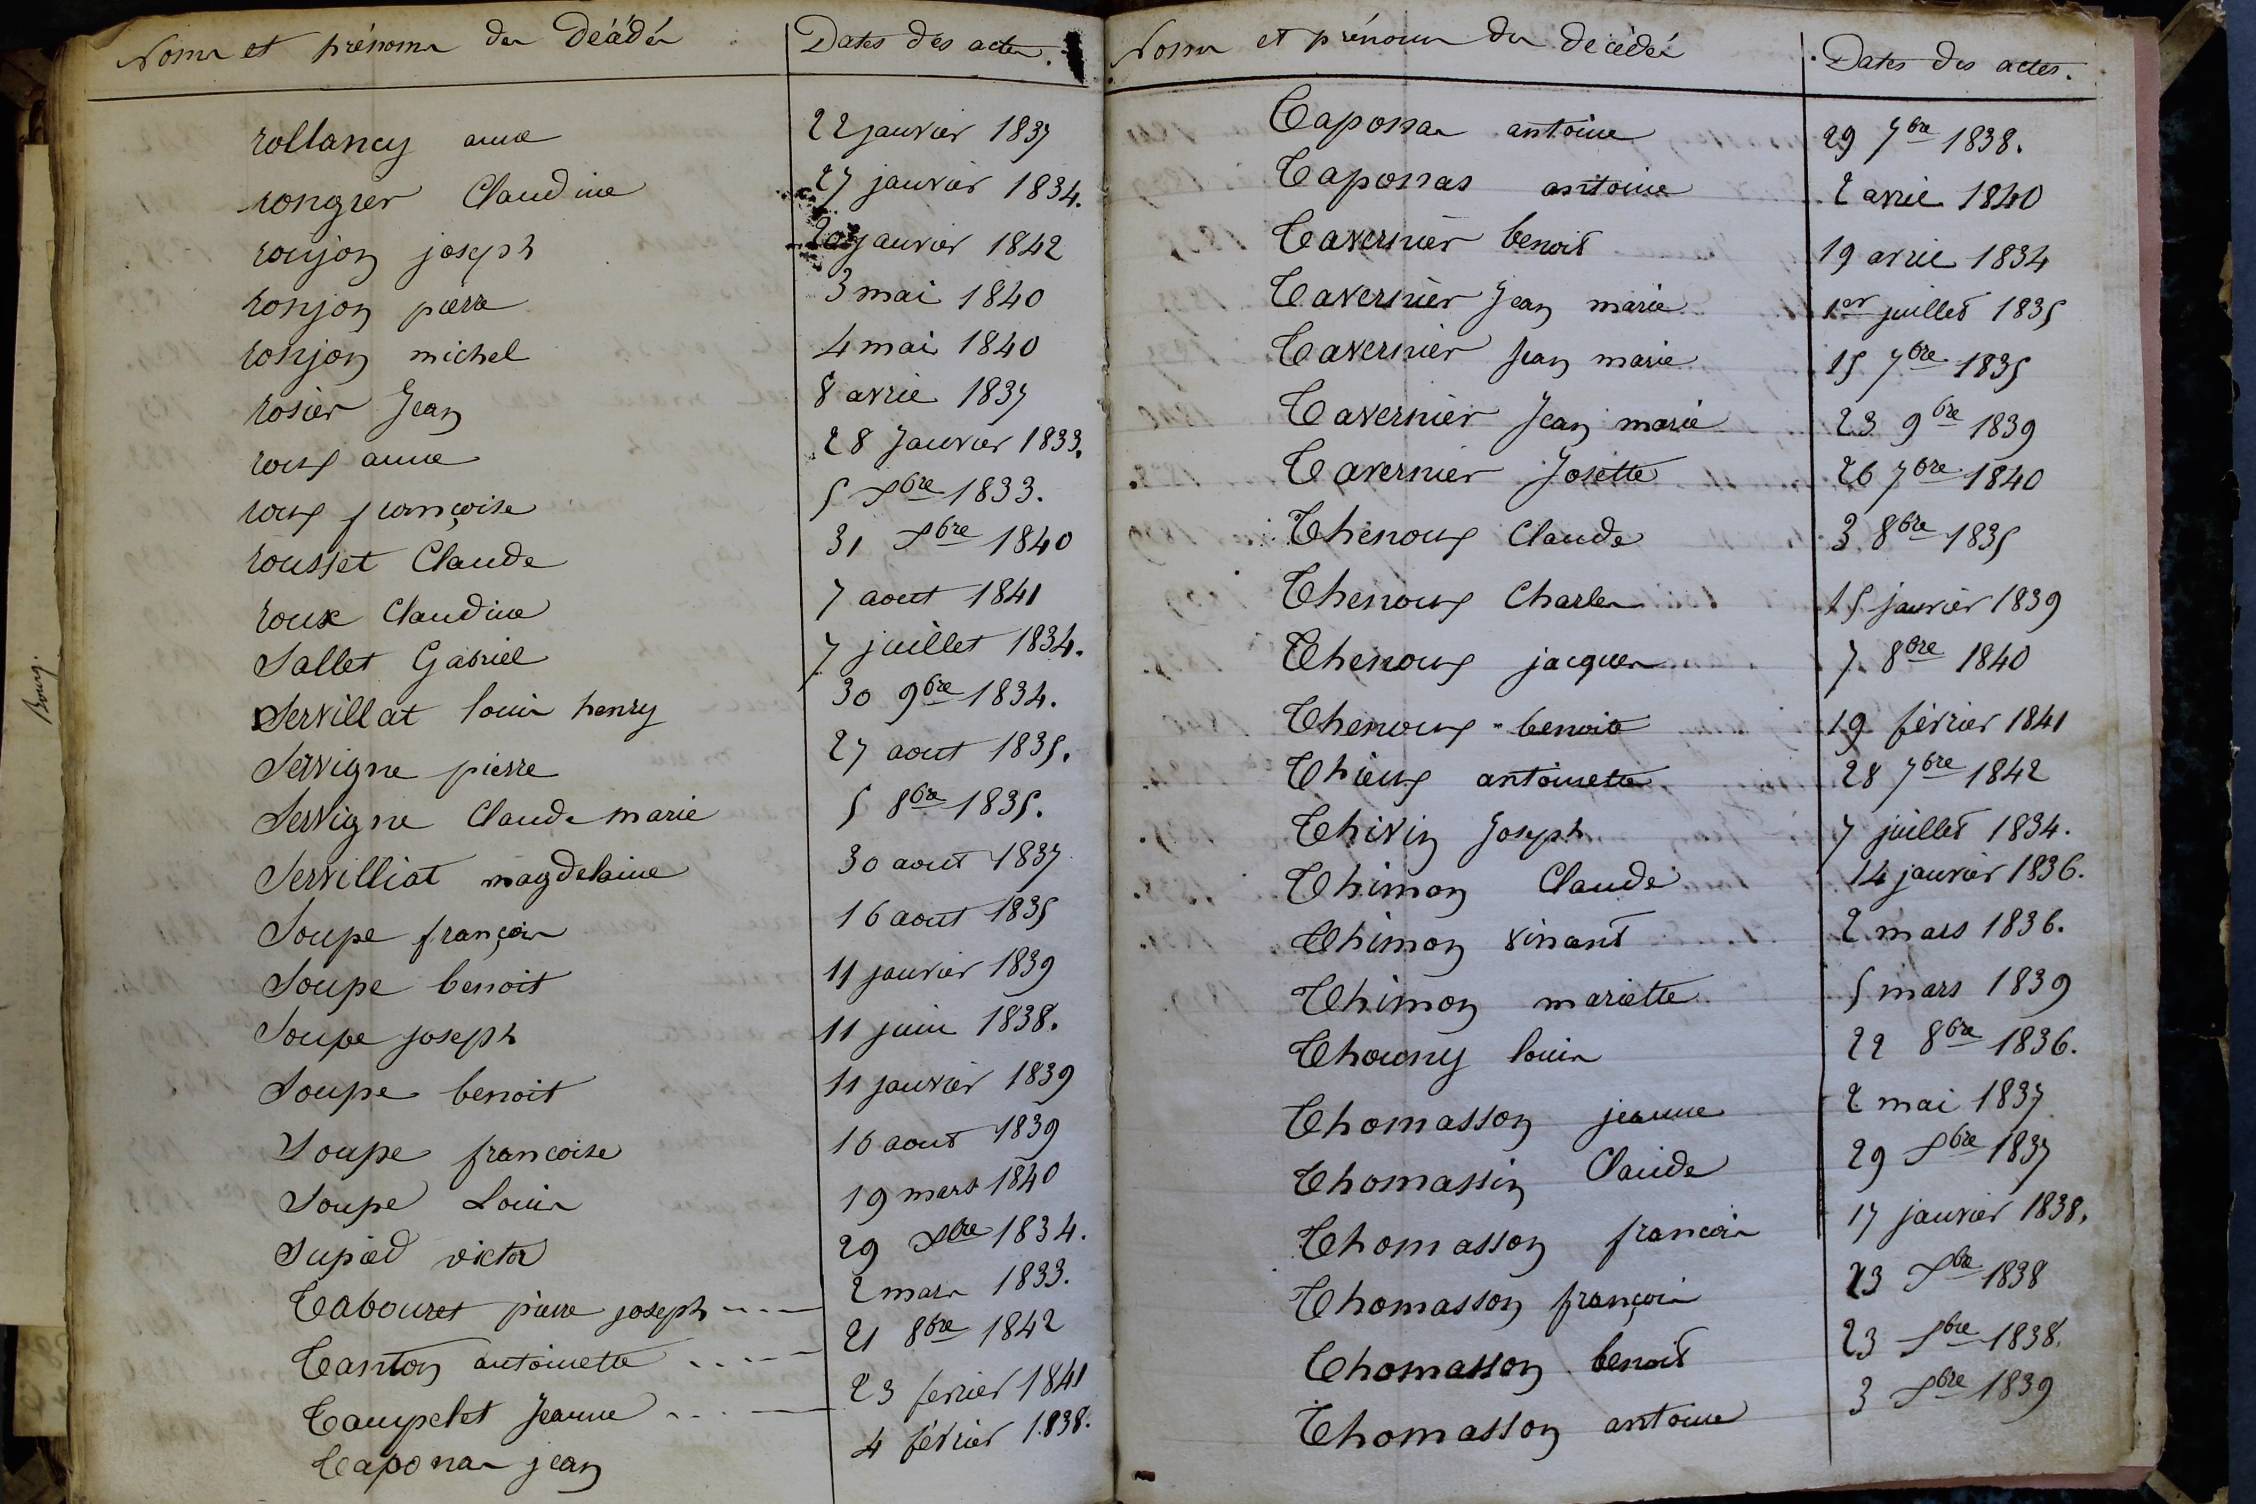 Noms et prénoms des Décédés Dates des actes.
rollancy anne 22 janvier 1837
rongier Claudine 27 janvier 1834.
ronjon joseph 20 janvier 1842
ronjon pierre 3 mai 1840
ronjon michel 4 mai 1840
rosier Jean 8 avril 1837
roux anne 28 Janvier 1833.
roux françoise 5 Xbre 1833.
rousset Claude 31 Xbre 1840
roux Claudine 7 aout 1841
Sallet Gabriel 7 juillet 1834.
Servillat louis henry 30 9bre 1834.
Servigne pierre 27 aout 1835.
Servigne Claude marie 5 8bre 1835.
Servilliat magdelaine 30 aout 1837
Soupe françois 16 aout 1835
Soupe benoit 11 janvier 1839
Soupe joseph 11 juin 1838.
Soupe benoit 11 janvier 1839
Soupe francoise 16 aout 1839
Soupe Louis 19 mars 1840
Supied victor 29 Xbre 1834.
Tabouret pierre joseph 2 mars 1833.
Tanton antoinette 21 8bre 1842
Taupelet Jeanne 23 fevrier 1841
Taponas jean 4 février 1838.
Noms et prénoms des décédés Dates des actes.
Taponas antoine 29 7bre 1838.
Taponas antoine 2 avril 1840
Tavernier benoit 19 avril 1834
Tavernier Jean marie 1er juillet 1835
Tavernier Jean marie 15 7bre 1835
Tavernier Jean marie 23 9bre 1839
Tavernier Josette 26 7bre 1840
Thenoux Claude 3 8bre 1835
Thenoux Charles 15 janvier 1839
Thenoux jacques 7 8bre 1840
Thenoux benoite 19 février 1841
Thieux antoinette 28 7bre 1842
Thivin Joseph 7 juillet 1834.
Thimon Claude 14 janvier 1836.
Thimon vinant 2 mars 1836.
Thimon mariette 5 mars 1839
Thouny louis 22 8bre 1836.
Thomasson jeanne 2 mai 1837
Thomassin Claude 29 Xbre 1837
Thomasson francois 17 janvier 1838.
Thomasson françois 23 Xbre 1838
Thomasson benoit 23 Xbre 1838.
Thomasson antoine 3 Xbre 1839
Bourg.